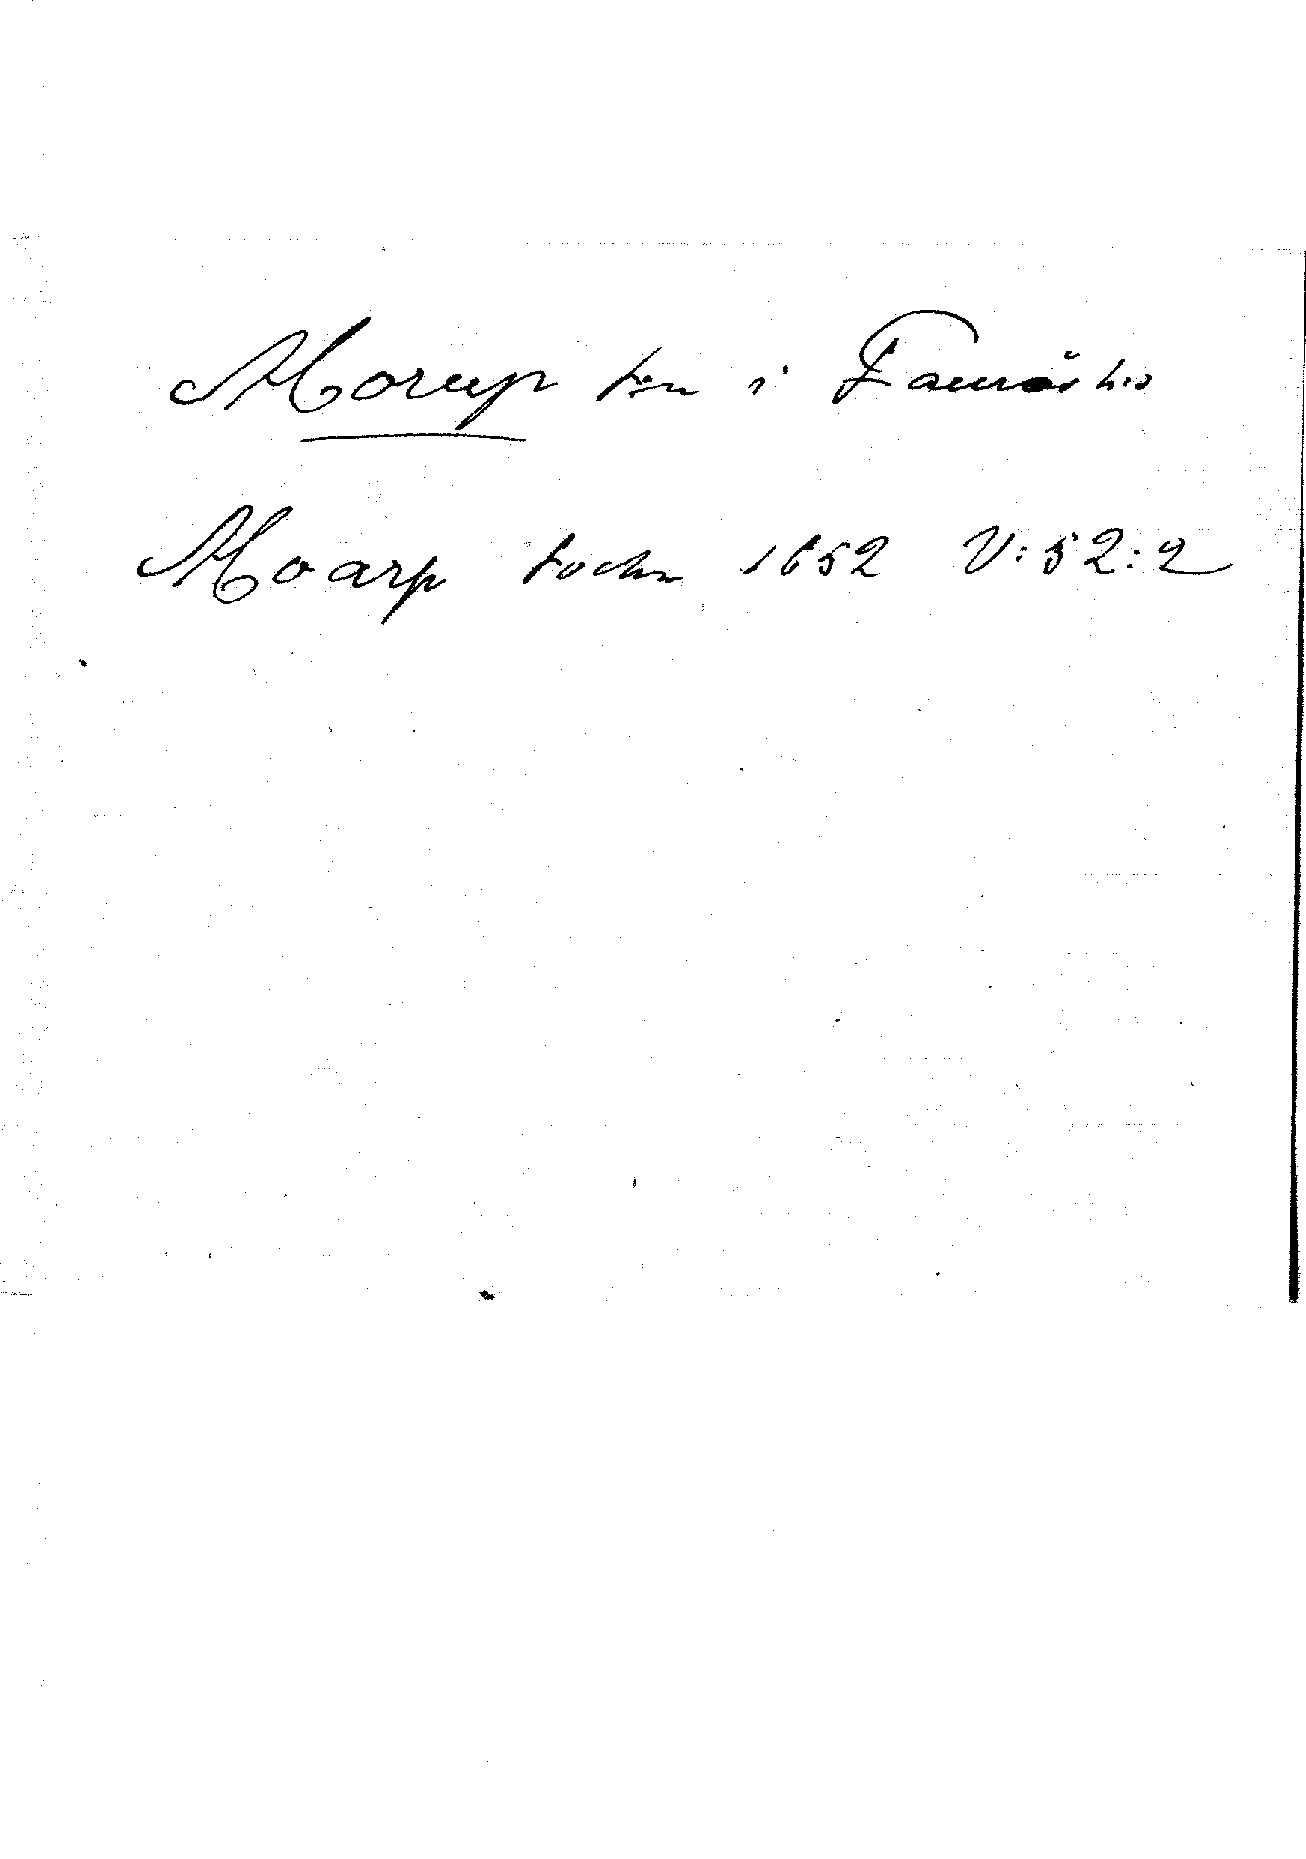 Morup sn i Faurås hd
Moarp Sochn 1652 V:52:2